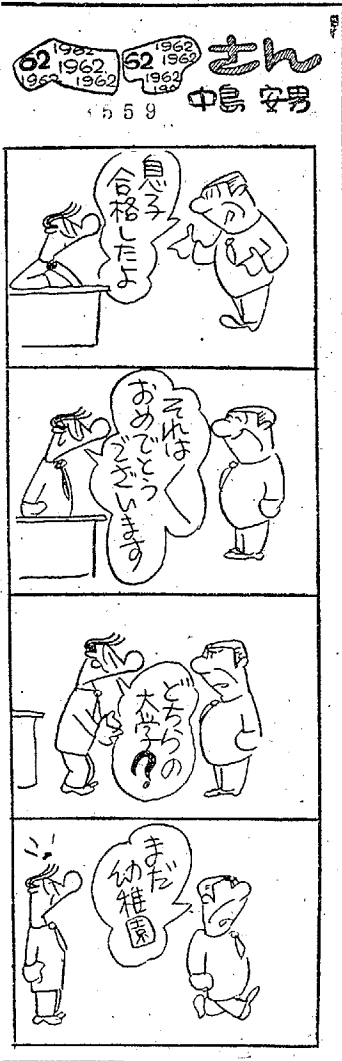 62 1962 1962 1962 1962
62 1962 1962 1962
さん
559
中島 安男
息子
合格したよ
それは
おめでとう
ございます
どちらの
大学?
まだ
幼稚園